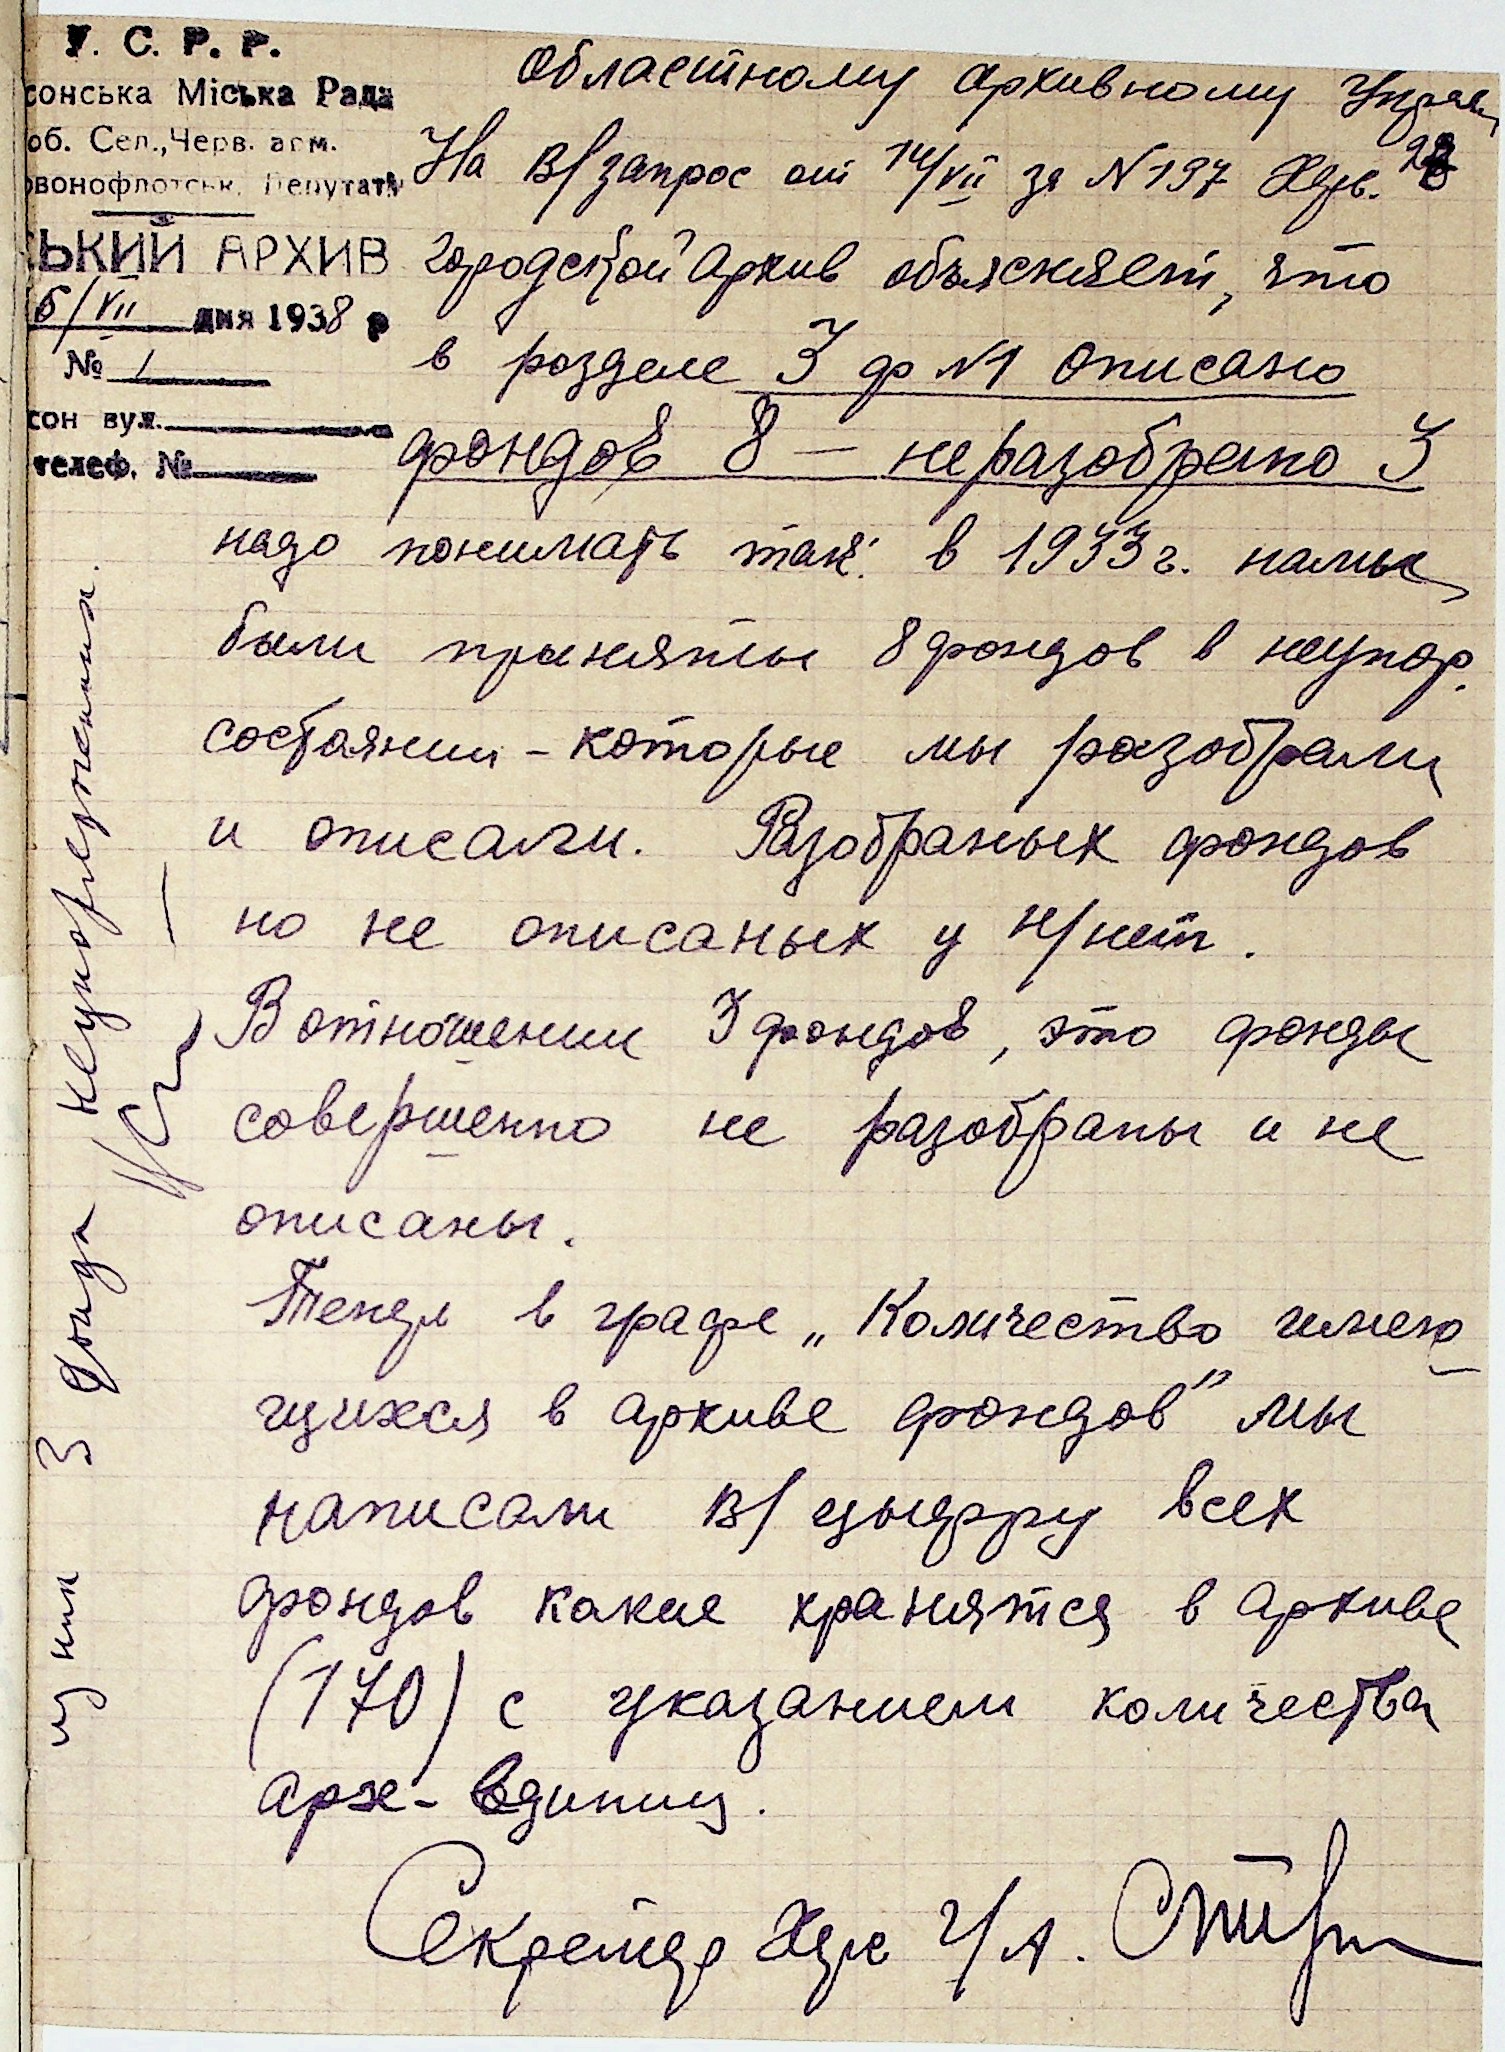 У. С. Р. Р.
сонська Міська Рада
об. Сел., Черв. арм.
рвонофлотськ. Депутатів
СЬКИЙ АРХИВ
6/VII дня 1938 р
№ 1
сон вул.
телеф. №
Областному архивному Управ.
На в/запрос от 14/VII за N 197 Хер. 28
городской архив объясняет, что
в розделе 3 ф N1 описано
фондов 8 – неразобрано 3
надо понимать так: в 1933 г. нами
были приняты 8 фондов в неупор.
состоянии – которые мы разобрали
и описали. Разобраных фондов
но не описаных у н/нет.
В отношении 3 фондов, это фонды
совершенно не разобраны и не
описаны.
Тепер в графе „Количество имею
щихся в архиве фондов" мы
написали в/ цыфру всех
фондов какие хранятся в архиве
(170) с указанием количества
арх- единиц.
Секретар Хер Г/А.
у них 3 фонда неупорядоченных.